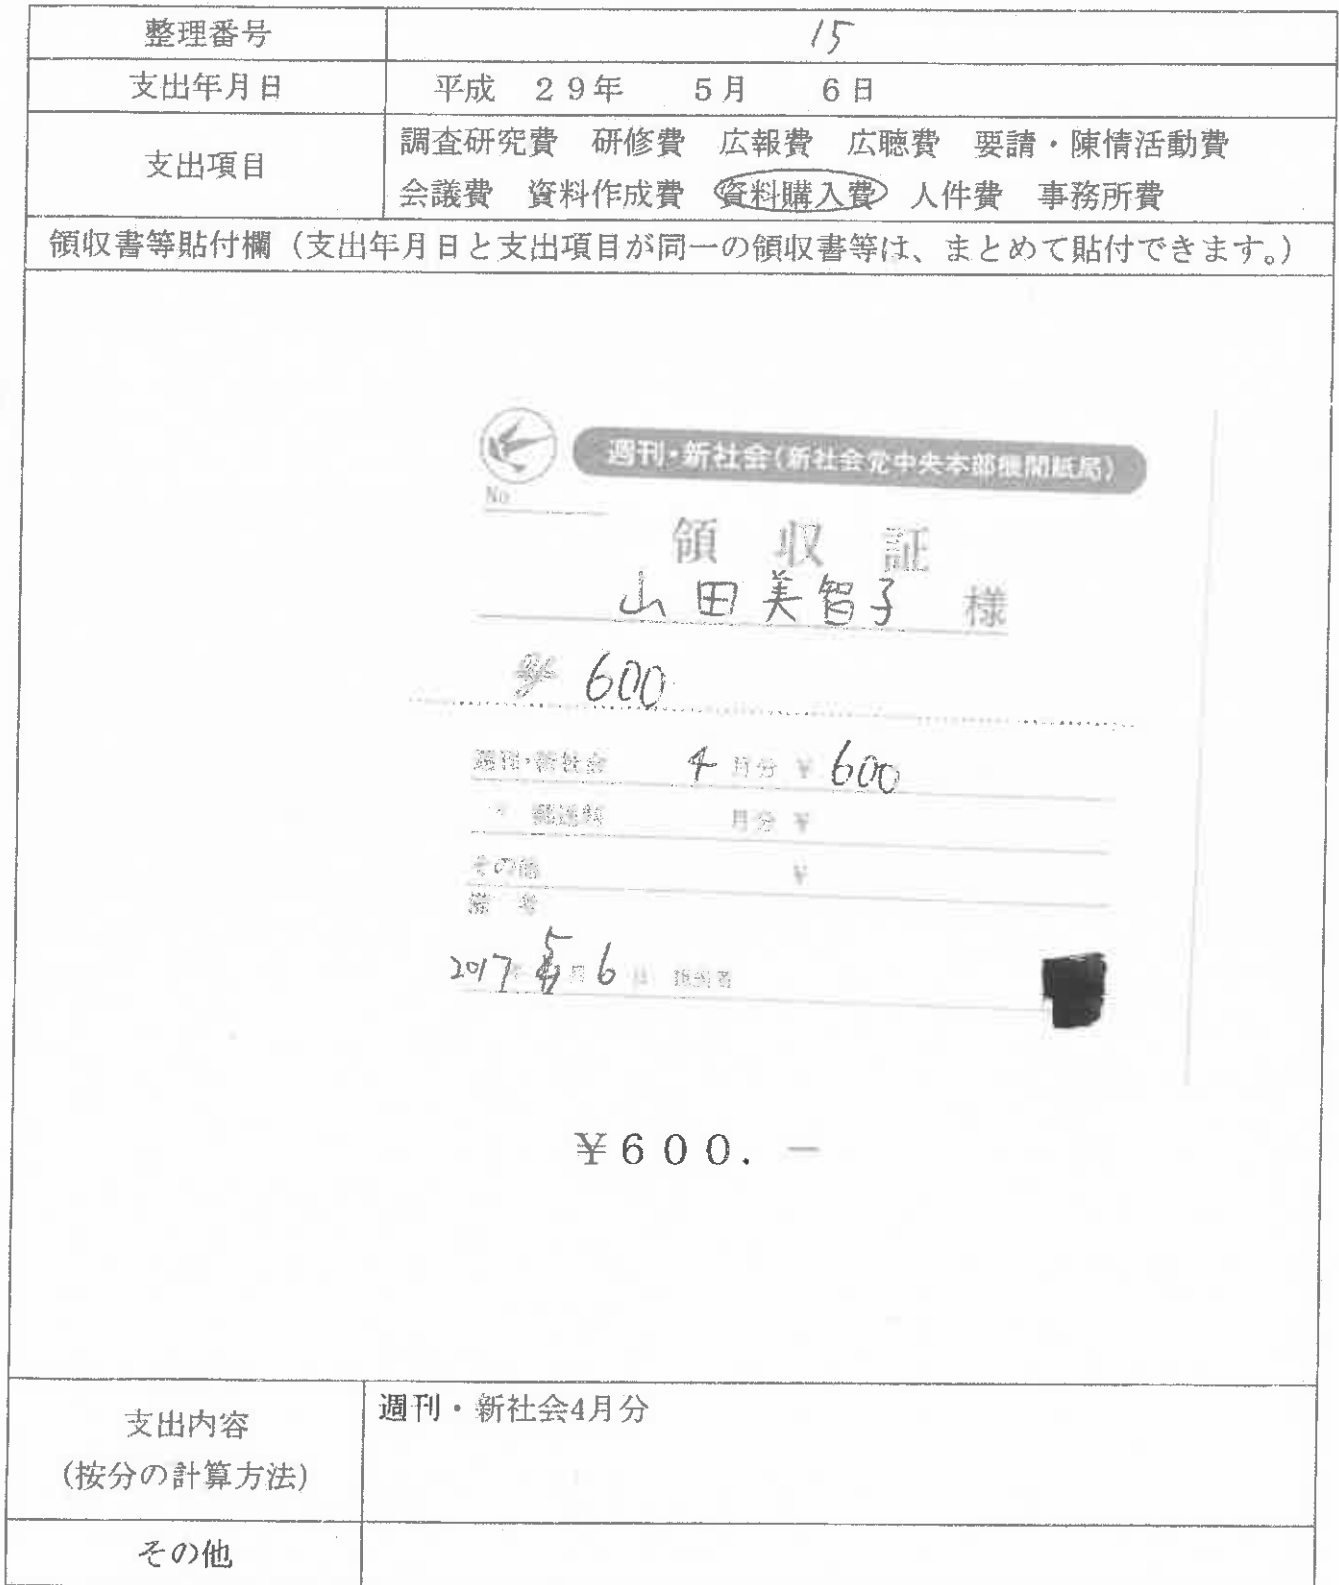 整理番号 15
支出年月日 平成 29年 5月 6日
支出項目
調査研究費 研修費 広報費 広聴費 要請・陳情活動費
会議費 資料作成費 資料購入費 人件費 事務所費
領収書等貼付欄（支出年月日と支出項目が同一の領収書等は、まとめて貼付できます。）
週刊・新社会（新社会党中央本部機関紙局）
No
領収証
山田美智子 様
¥ 600
週刊・新社会 4 月分 ¥ 600
〃 郵送料 月分 ¥
その他 ¥
備考
2017年 5月 6日 担当者
¥600.－
支出内容
(按分の計算方法)
週刊・新社会4月分
その他